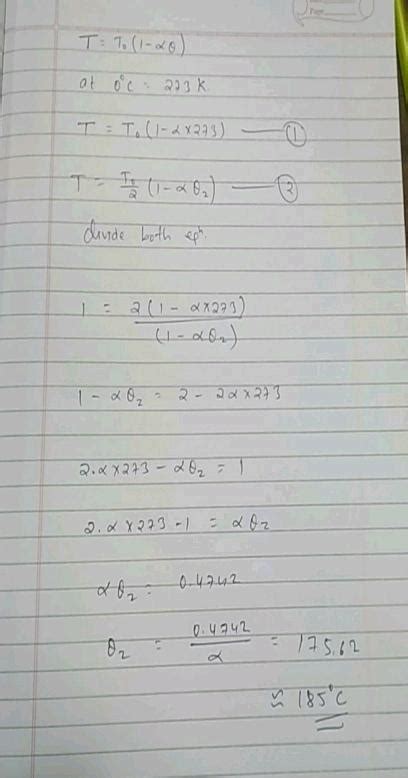 T = T₀ (1-αθ)
at 0°C = 273 K.
T = T₀ (1-α×273) —— ①
T = T₀/2 (1-αθ₂) —— ②
divide both eqⁿ.
1 = 2(1 - α×273) / (1-αθ₂)
1 - αθ₂ = 2 - 2α×273
2.α×273 - αθ₂ = 1
2.α×273 - 1 = αθ₂
αθ₂ = 0.4742
θ₂ = 0.4742/α = 175.62
≈ 185°C